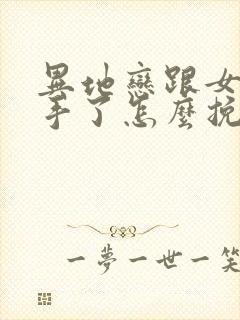 異地戀跟女
手了怎麼挽
一夢一世一笑